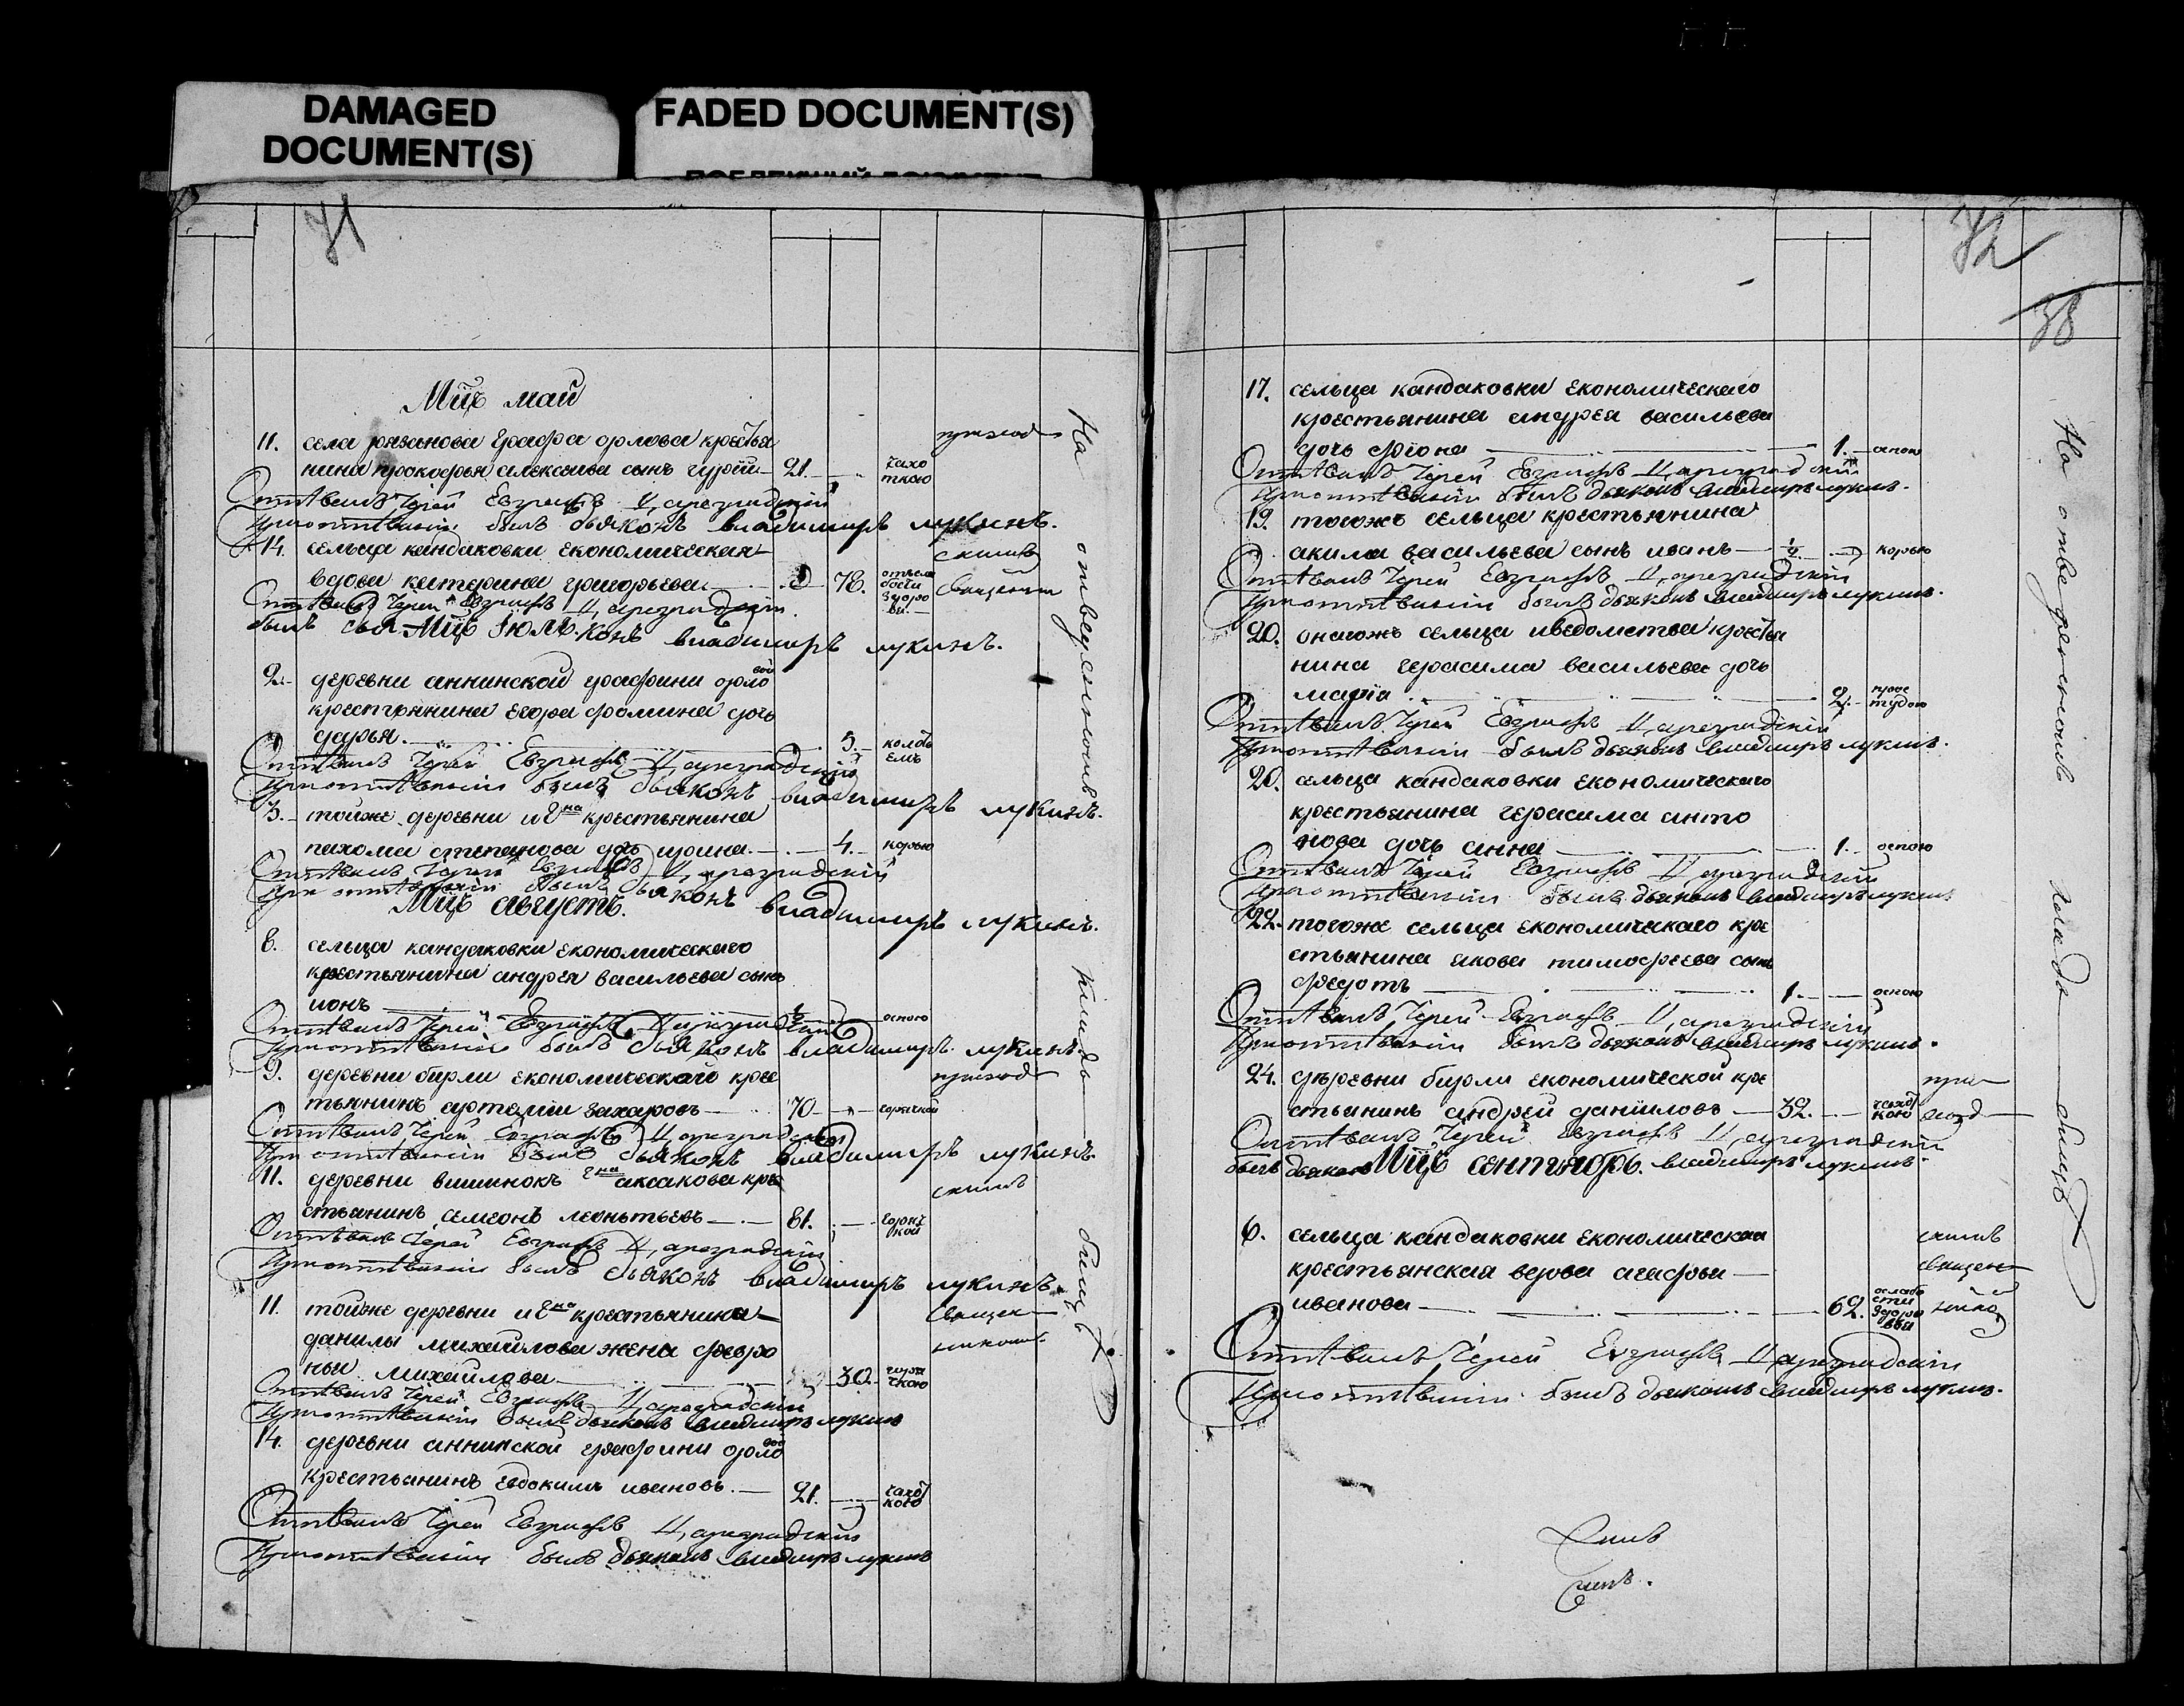 DAMAGED
DOCUMENT(S)
FADED DOCUMENT(S)
71
Мцъ май
11. села рязанова графа орлова крестья
нина прокофья алексеева сынъ гурїй 21. чахо
ткою
Отпѣвалъ Іерей Евграфъ Цареградскій
При отпѣванїи былъ дьяконъ владимиръ лукинъ.
14. сельца кандаковки економическая
вдова катерина григорьева 78. отъсла
бости
здоро
вь
Отпѣвалъ Іерей Евграфъ Цареградскій
былъ дьяконъ владимиръ лукинъ.
Мцъ Іюль
2. деревни аннинской графини орло
вой
крестьянина егора фомина дочь
дарья 5. колоть
емъ
Отпѣвалъ Іерей Евграфъ Цареградскій
При отпѣванїи былъ дьяконъ владимиръ лукинъ.
3. тойже деревни и гна крестьянина
пахома степанова дочь ирина 4. корью
Отпѣвалъ Іерей Евграфъ Цареградскій
При отпѣванїи былъ дьяконъ владимиръ лукинъ.
Мцъ августъ.
8. сельца кандаковки економическаго
крестьянина андрея васильева сынъ
ионъ оспою
Отпѣвалъ Іерей Евграфъ Цареградскій
При отпѣванїи былъ дьяконъ владимиръ лукинъ.
9. деревни бирли економическаго крес
тьянинъ артемїи захаровъ 70 горячкой
Отпѣвалъ Іерей Евграфъ Цареградскій
При отпѣванїи былъ дьяконъ владимиръ лукинъ.
11. деревни вишинокъ гна аксакова кре
стьянинъ семеонъ леоньтьевъ 81. горяч
кой
Отпѣвалъ Іерей Евграфъ Цареградскій
При отпѣванїи былъ дьяконъ владимиръ лукинъ.
11. тойже деревни и гна крестьянина
данилы михайлова жена февро
нья михайлова 30. горя
чкою
Отпѣвалъ Іерей Евграфъ Цареградскій
При отпѣванїи былъ дьяконъ владимиръ лукинъ
14. деревни аннинской графини орло
вой
крестьянинъ евдокимъ ивановъ. 21. чахот
кою
Отпѣвалъ Іерей Евграфъ Цареградскій
При отпѣванїи былъ дьяконъ владимиръ лукинъ
приход
скимъ
священни
приход
скимъ
священ
никомъ
На отведенномъ кладбищѣ
72
38
17. сельца кандаковки економическаго
крестьянина андрея васильева
дочь фїона 1. оспою
Отпѣвалъ Іерей Евграфъ Цареградскій
При отпѣванїи былъ дьяконъ владимиръ лукинъ.
19. тогожъ сельца крестьянина
акима васильева сынъ иванъ корью
Отпѣвалъ Іерей Евграфъ Цареградскій
При отпѣванїи былъ дьяконъ владимиръ лукинъ.
20. онагожъ сельца иведомства крестья
нина герасима васильева дочь
марїа 2. прос
тудою
Отпѣвалъ Іерей Евграфъ Цареградскій
При отпѣванїи былъ дьяконъ владимиръ лукинъ.
20. сельца кандаковки економическаго
крестьянина герасима анто
нова дочь анна 1. оспою
Отпѣвалъ Іерей Евграфъ Цареградскій
При отпѣванїи былъ дьяконъ владимиръ лукинъ
22. тогоже сельца економическаго кре
стьянина якова тимофеева сынъ
федотъ 1. оспою
Отпѣвалъ Іерей Евграфъ Цареградскій
При отпѣванїи былъ дьяконъ владимиръ лукинъ.
24. деревни бирли економической кре
стьянинъ андрей данииловъ 32. чахот
кою
при
ход
Отпѣвалъ Іерей Евграфъ Цареградскій
былъ дьяконъ владимиръ лукинъ.
Мцъ сентябрь.
6. сельца кандаковки економическая
крестьянская вдова агафья
иванова 62. ослабо
сти
здоро
вья
скимъ
священ
нико
Отпѣвалъ Іерей Евграфъ Цареградскій
При отпѣванїи былъ дьяконъ владимиръ лукинъ.
На отведенномъ кладбищѣ